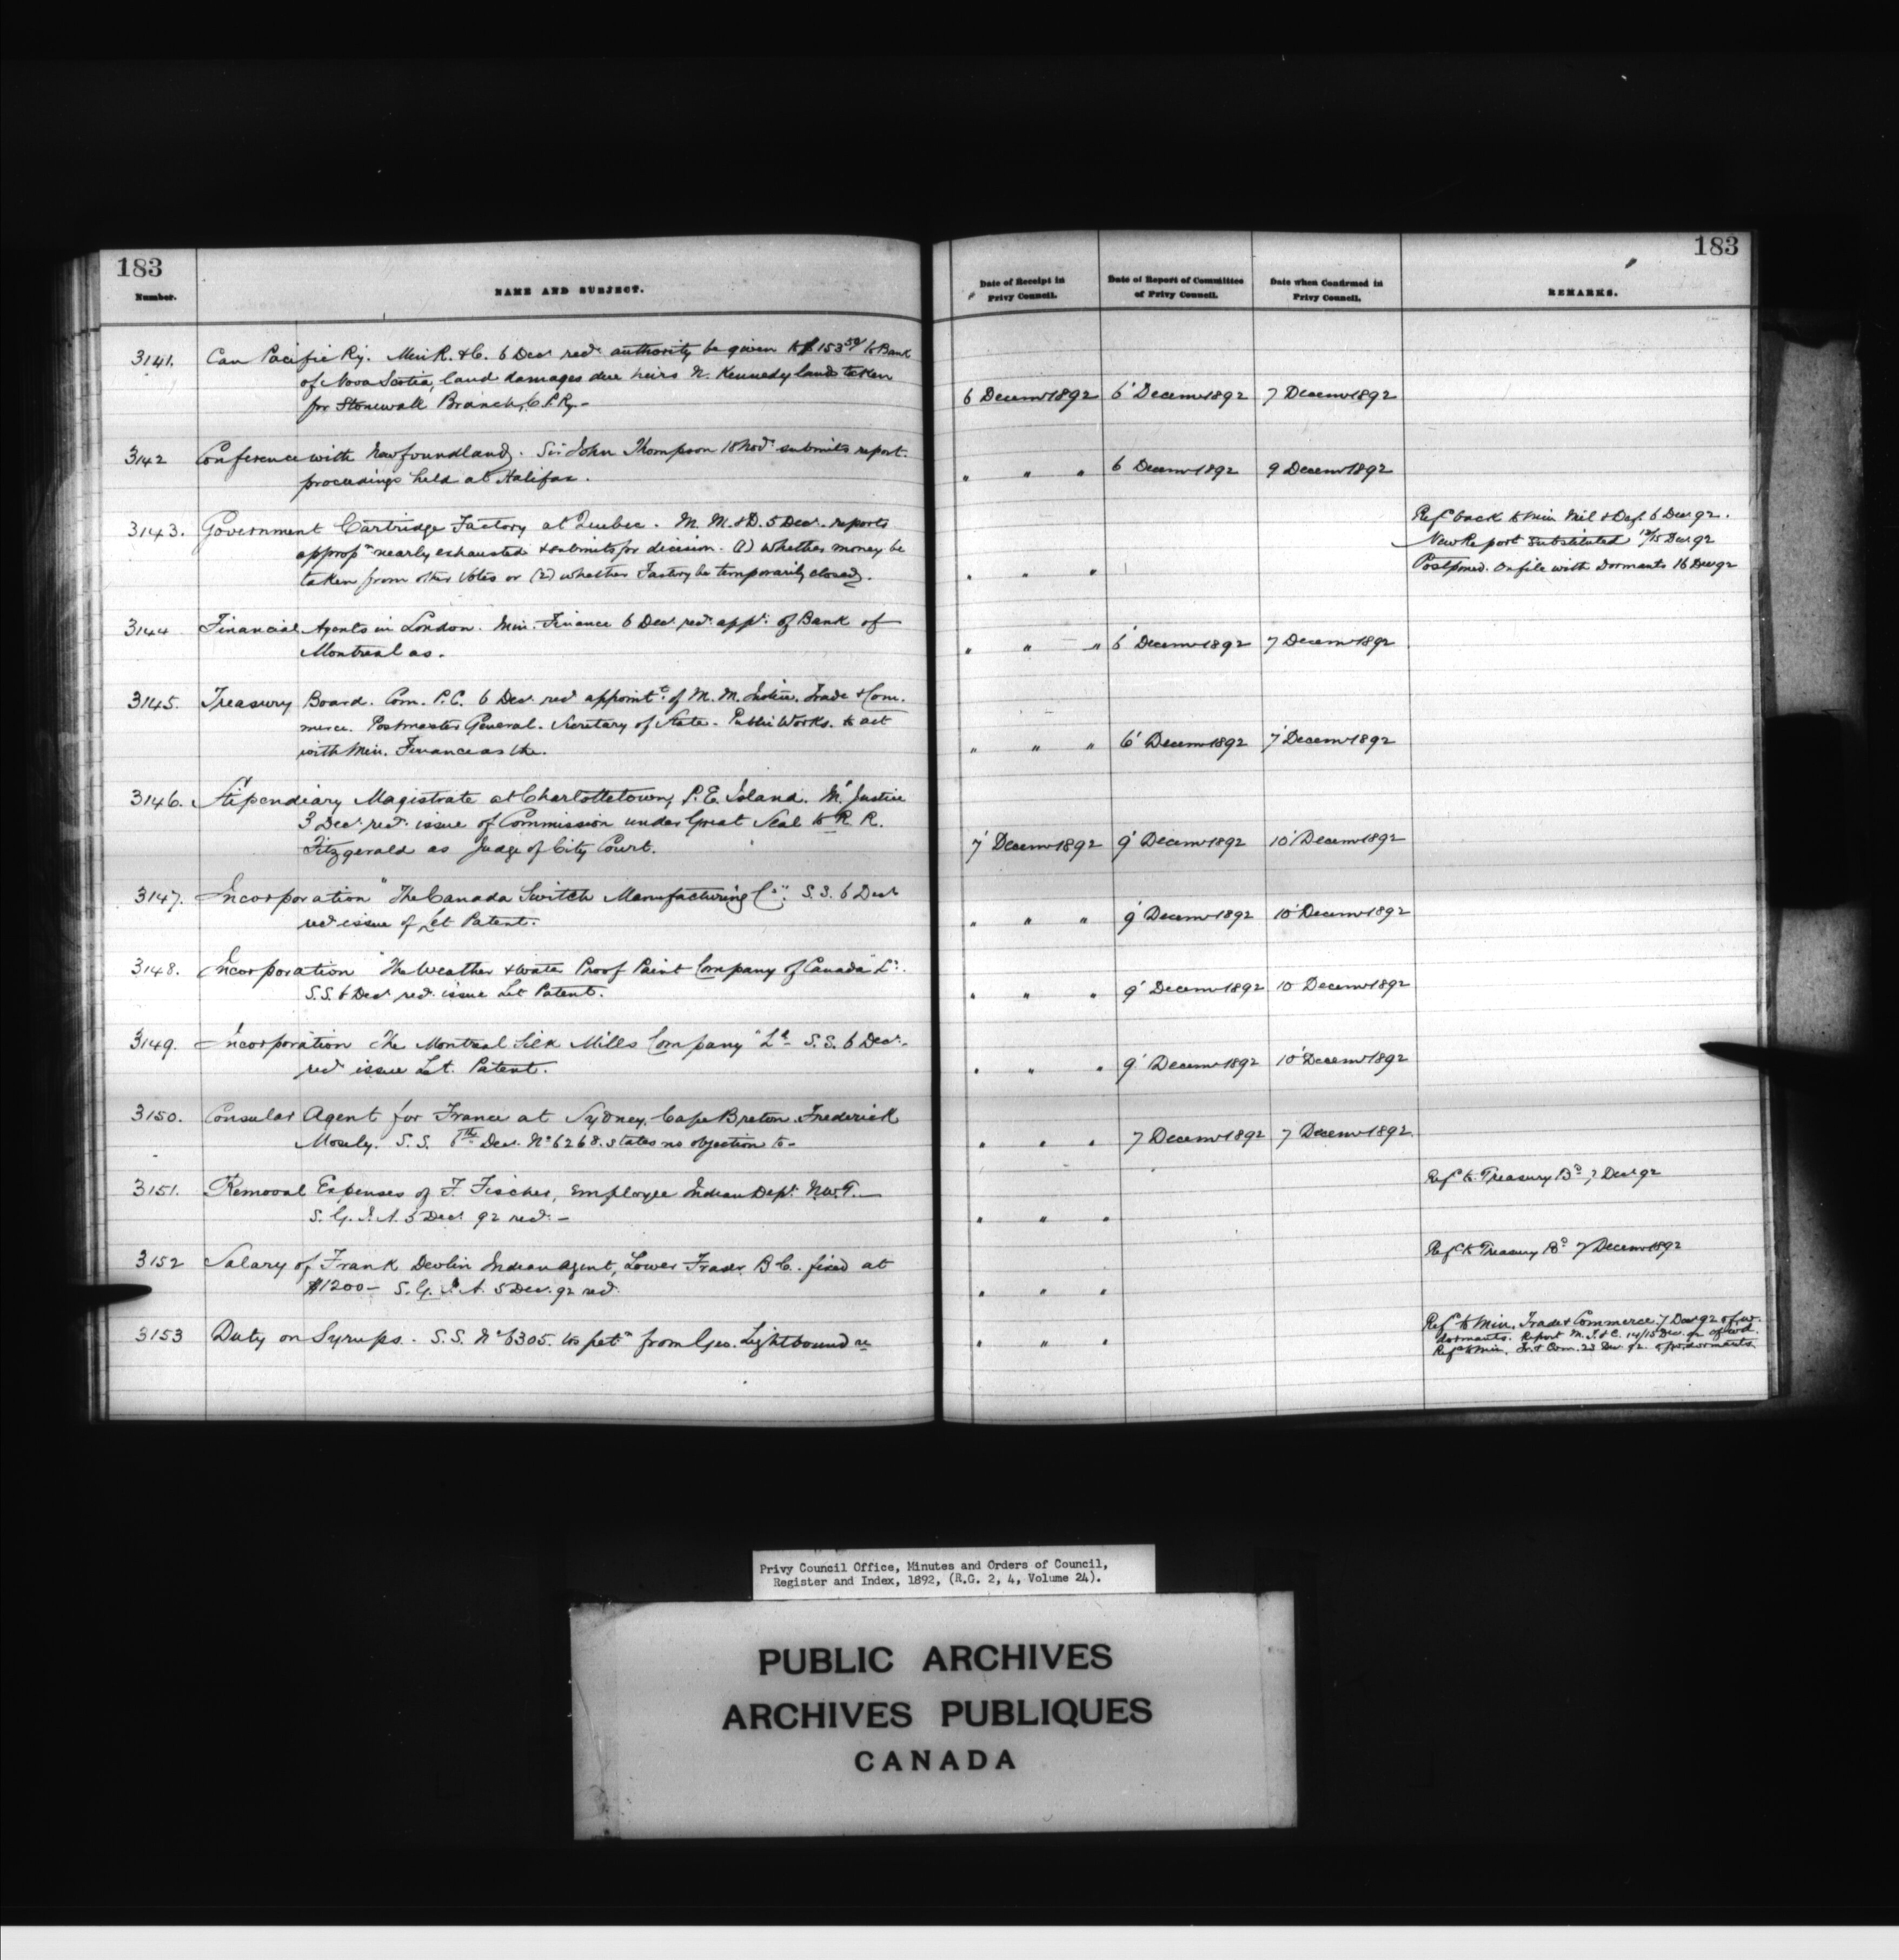 183
183
Number.
NAME AND SUBJECT.
Date of Receipt in Privy Council.
Date of Report of Committee of Privy Council.
Date when Confirmed in Privy Council.
REMARKS.
3141. Can Pacific Ry. Min R. & C. 6 Decr recd authority be given to $153 50/ to Bank
of Nova Scotia, land damages due heirs N. Kennedy land taken
for Stonewall Branch, C.P.Ry.-
6 Decemr 1892 6' Decemr 1892 7 Decemr 1892
3142 Conference with Newfoundland. Sir John Thompson 18 Novr submits report.
proceedings held at Halifax.
" " " 6 Decemr 1892 9 Decemr 1892
3143. Government Cartridge Factory at Quebec. M. M. & D. 5 Decr. reports
appropn nearly exhausted & submits for decision. (1) whether money be
taken from other Votes or (2) whether Factory be temporarily closed.
" " "
Refd back to Min Mil & Def. 6 Decr 92.
New Report substituted 12/15 Decr 92
Postponed. On file with Dormants 16 Decr 92
3144 Financial Agents in London. Min. Finance 6 Decr recd appt: of Bank of
Montreal as.
" " " 6' Decemr 1892 7 Decemr 1892
3145. Treasury Board. Com. P.C. 6 Decr recd appointt: of M. M. Justice. Trade & Com.
merce. Postmaster General. Secretary of State. Public Works. to act
with Min. Finance as the.
" " " 6' Decemr 1892 7' Decemr 1892
3146. Stipendiary Magistrate at Charlottetown, P.E. Island. Mr Justice
3 Decr recd issue of Commission under Great Seal to R. R.
Fitzgerald as Judge of City Court.
7' Decemr 1892 9' Decemr 1892 10' Decemr 1892
3147. Incorporation "The Canada Switch Manufacturing Co". S.S. 6 Decr
recd issue of Let Patent.
" " " 9' Decemr 1892 10' Decemr 1892
3148. Incorporation "The Weather & Water Proof Paint Company of Canada" Ld.
S.S. 6 Decr recd issue Let Patent.
" " " 9' Decemr 1892 10 Decemr 1892
3149. Incorporation The Montreal Silk Mills Company" Ld- S.S. 6 Decr.
recd issue Let. Patent.
" " " 9' Decemr 1892 10' Decemr 1892
3150. Consular Agent for France at Sydney, Cape Breton. Frederick
Mosely. S.S. 6th Decr. No 6268. states no objection to-
" " " 7 Decemr 1892 7 Decemr 1892.
3151. Removal Expenses of F. Fischer, Employee Indian Dept. N.W.T.
S.G.I.A. 5 Decr 92 recd. -
" " "
Refd to Treasury Bd 7 Decr 92
3152 Salary of Frank Devlin Indian Agent, Lower Fraser B.C. fixed at
$1200- S.G.I.A. 5 Decr. 92 recd.
" " "
Refd to Treasury Bd 7 Decemr 1892
3153 Duty on Syrups. S.S. No 6305. tos petn from Geo. Lightbound re
" " "
Refd to Min. Trade & Commerce. 7 Decr 92
dormants. Report M.T.&C. 14/15 Dec.
Refd to Min. Tr. & Com. 23 Dec. 92. dormants.
Privy Council Office, Minutes and Orders of Council,
Register and Index, 1892, (R.G. 2, 4, Volume 24).
PUBLIC ARCHIVES
ARCHIVES PUBLIQUES
CANADA